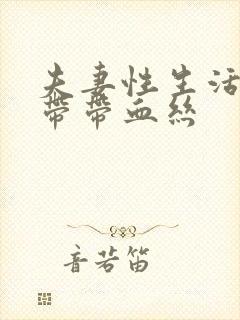 夫妻性生活
带带血丝
音若笛